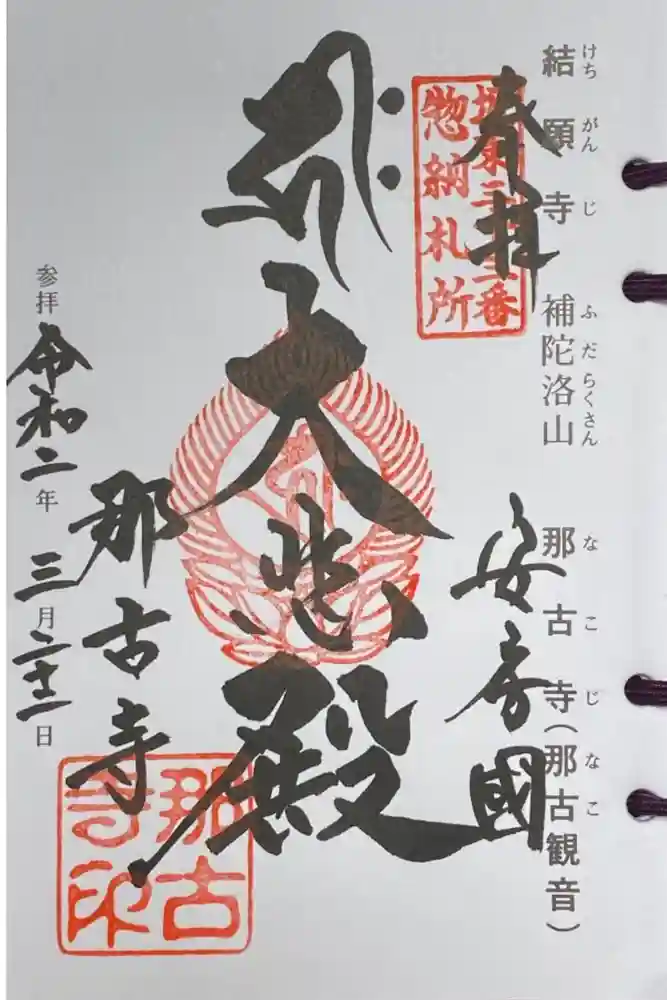 けち がん じ ふだらくさん なこじ なこ
結願寺 補陀洛山 那古寺(那古観音)
奉拝
坂東三十三番
惣納札所
安房國
大悲殿
那古寺
那古
寺印
参拝 令和二年 三月 日